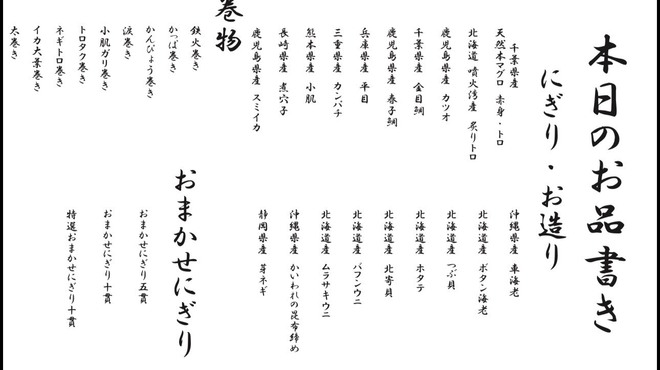 本日のお品書き
にぎり・お造り
千葉県産
天然本マグロ 赤身・トロ
北海道 噴火湾産 炙りトロ
鹿児島県産 カツオ
千葉県産 金目鯛
鹿児島県産 春子鯛
兵庫県産 平目
三重県産 カンパチ
熊本県産 小肌
長崎県産 煮穴子
鹿児島県産 スミイカ
沖縄県産 車海老
北海道産 ボタン海老
北海道産 つぶ貝
北海道産 ホタテ
北海道産 北寄貝
北海道産 バフンウニ
北海道産 ムラサキウニ
沖縄県産 かいわれの昆布締め
静岡県産 芽ネギ
巻物
鉄火巻き
かっぱ巻き
かんぴょう巻き
涙巻き
小肌ガリ巻き
トロタク巻き
ネギトロ巻き
イカ大葉巻き
太巻き
おまかせにぎり
おまかせにぎり五貫
おまかせにぎり十貫
特選おまかせにぎり十貫